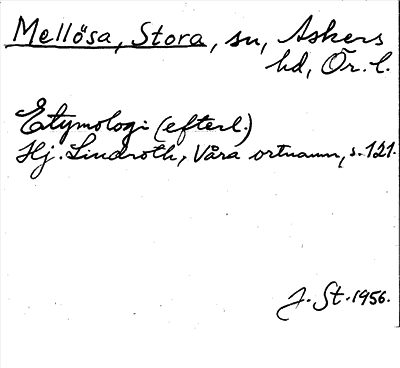 Mellösa, Stora, sn, Askers
hd, Ör. l.
Etymologi (efterl.)
Hj. Lindroth, Våra ortnamn, s. 121.
J. St. 1956.